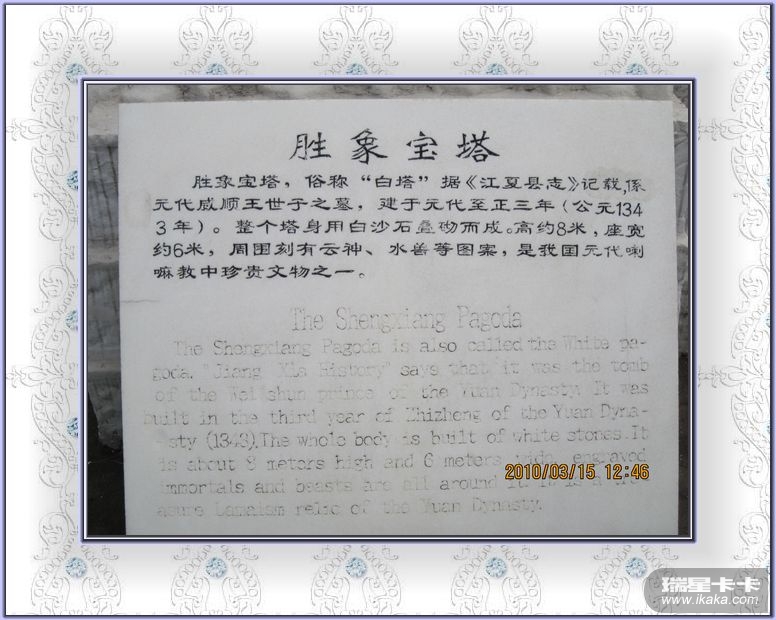 胜象宝塔
胜象宝塔，俗称“白塔”据《江夏县志》记载,係
元代威顺王世子之墓，建于元代至正三年（公元134
3年）。整个塔身用白沙石叠砌而成。高约8米，座宽
约6米，周围刻有云神、水兽等图案，是我国元代喇
嘛教中珍贵文物之一。
The Shengxiang Pagoda
The Shengxiang Pagoda is also called the White pa-
goda. "Jiang Xia History" says that it was the tomb
of the Wei shun prince of the Yuan Dynasty. It was
built in the third year of Zhizheng of the Yuan Dyna-
sty (1343). The whole body is built of white stones. It
is about 8 meters high and 6 meters wide, engraved
immortals and beasts are all around it. It is a tre-
asure Lamaism relic of the Yuan Dynasty.
2010/03/15 12:46
瑞星卡卡
www.ikaka.com